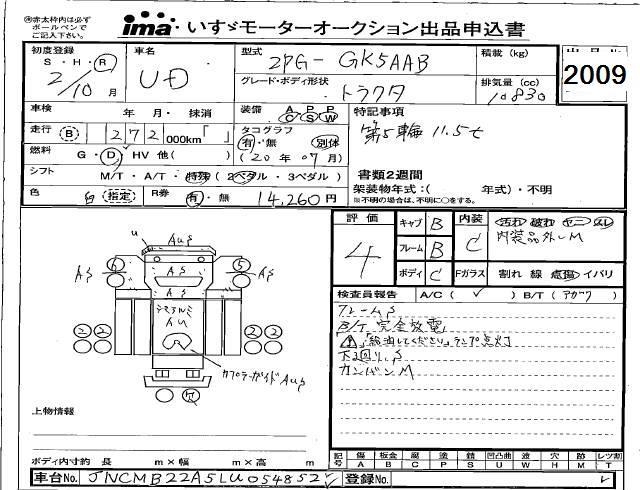 ㊟赤太枠内は必ず
ボールペンで
ご記入下さい。
ima いすゞモーターオークション出品申込書
初度登録
S・H・R
2/10月
車名
UD
型式
2PG-GK5AAB
グレード・ボディ形状
トラクタ
積載 (kg)
排気量 (cc)
10830
2009
車検 年・月・抹消
装備 A/C P/S P/W
特記事項
第5輪 11.5t
走行 B 272 000km「 」
タコグラフ
有・無 別体
(20年07月)
燃料 G・D・HV 他( )
シフト M/T・A/T・特殊(2ペダル・3ペダル)
書類2週間
架装物年式:( 年式)・不明
※不明の場合は、不明に○をする。
色 白 (指定) R券 有・無 14,260円
評価
4
キャブ B
フレーム B
ボディ C
内装 C
汚れ 破れ ヤニ スレ
内装品外しM
Fガラス 割れ 線 飛傷 イバリ
検査員報告 A/C (✓) B/T ( )
B/T 完全放電
「給油してください」ランプ点灯
下回り.S
カンバンM
u
AuS
AS
5
5
AS
AS
AS
AU
2 2
2 2
カプラーガイドAuS
上物情報
ボディ内寸約 長 m×幅 m×高 m
記号 傷A 板金B 腐C 塗P 錆S 凹凸曲U 波W 穴H 無M レツ割T
車台No. JNCMB22A5LU054852
登録No.